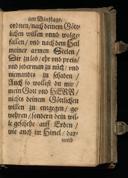 am Dinstage.
ordnen/ nach deinem Göt-
lichen willen vnnd wolge-
fallen/ vnd nach dem Heil
meiner armen Seelen/
Dir zu lob/ ehr vnd preis/
vnd jederman zu nütz/ vnd
niemandts zu schaden/
Auch so wollest du mir/
mein Gott vnd HERR/
nichts deinem Göttlichen
willen zu entgegen/ ge-
wehren/ sondern dein wil-
le geschehe auff Erden/
wie auch im Himel/ dar-